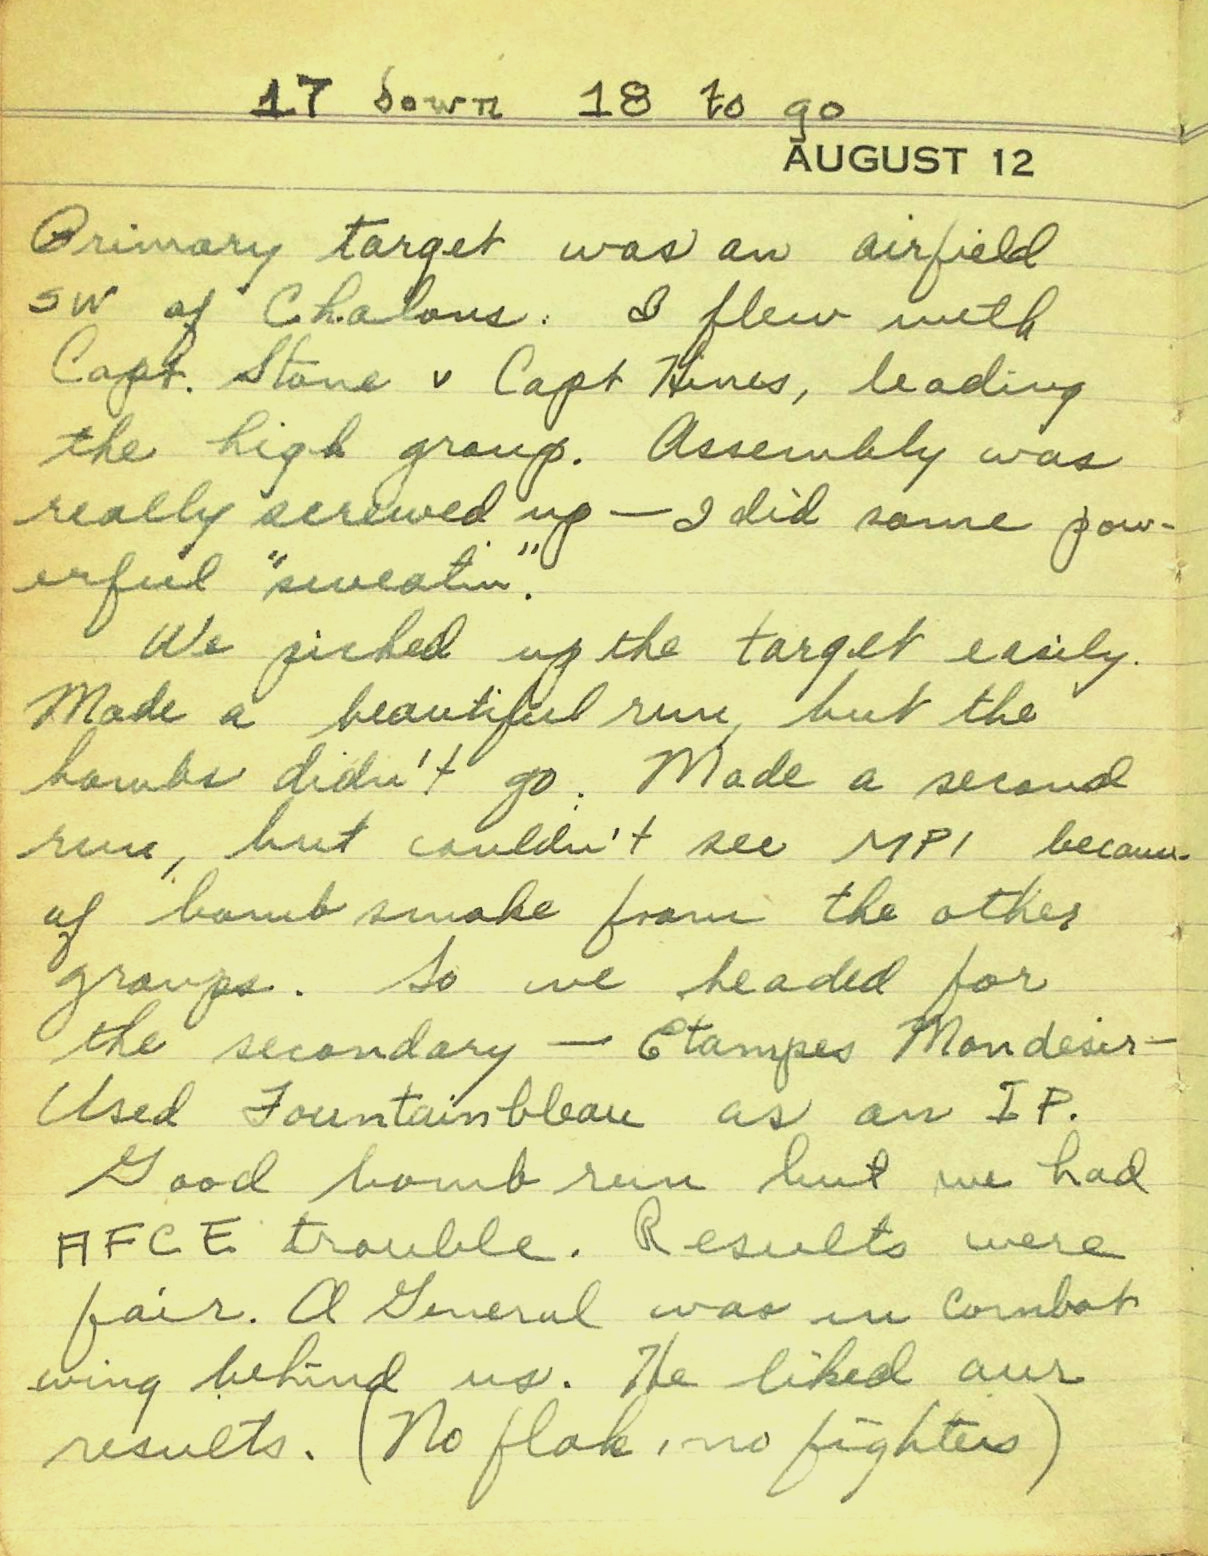 17 down 18 to go
AUGUST 12
Primary target was an airfield
SW of Chalons. I flew with
Capt. Stone & Capt Hines, leading
the high group. Assembly was
really screwed up — I did some pow-
erful "sweatin".
We picked up the target easily.
Made a beautiful run, but the
bombs didn't go. Made a second
run, but couldn't see MPI because
of bomb smoke from the other
groups. So we headed for
the secondary — Etampes Mondesir —
Used Fountainbleau as an IP.
Good bomb run but we had
AFCE trouble. Results were
fair. A General was in combat
wing behind us. He liked our
results. (No flak, no fighters)